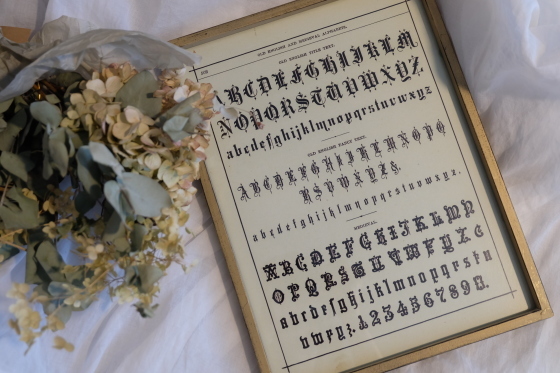 OLD ENGLISH AND MEDIEVAL ALPHABETS.
OLD ENGLISH TITLE TEXT.
ABCDEFGHIJKLM
NOPQRSTUVWXYZ
abcdefghijklmnopqrstuvwxyz
OLD ENGLISH FANCY TEXT.
ABCDEFGHIJKLMNOPQ
RSTUVWXYZ&.
abcdefghijklmnopqrstuvwxyz.
MEDIEVAL.
ABCDEFGHIJKLMN
OPQRSTUVWXYZ&
abcdefghijklmnopqrstu
vwxyz.1234567890.